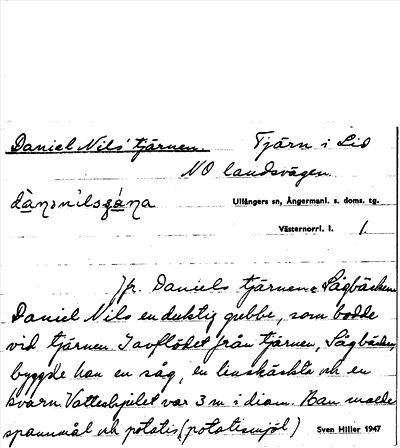 Daniel Nils' tjärnen. Tjärn i Lid
NO landsvägen.
Ullångers sn, Ångermanl. s. doms. tg.
Västernorrl. l. 1.
Jfr. Daniels tjärnen = Sågbäcken
Daniel Nils en duktig gubbe, som bodde
vid tjärnen. I avflödet från tjärnen, Sågbäcken,
byggde han en såg, en linskäkte och en
kvarn. Vattenhjulet var 3 m i diam. Han malde
spannmål och potatis (potatismjöl) Sven Hiller 1947